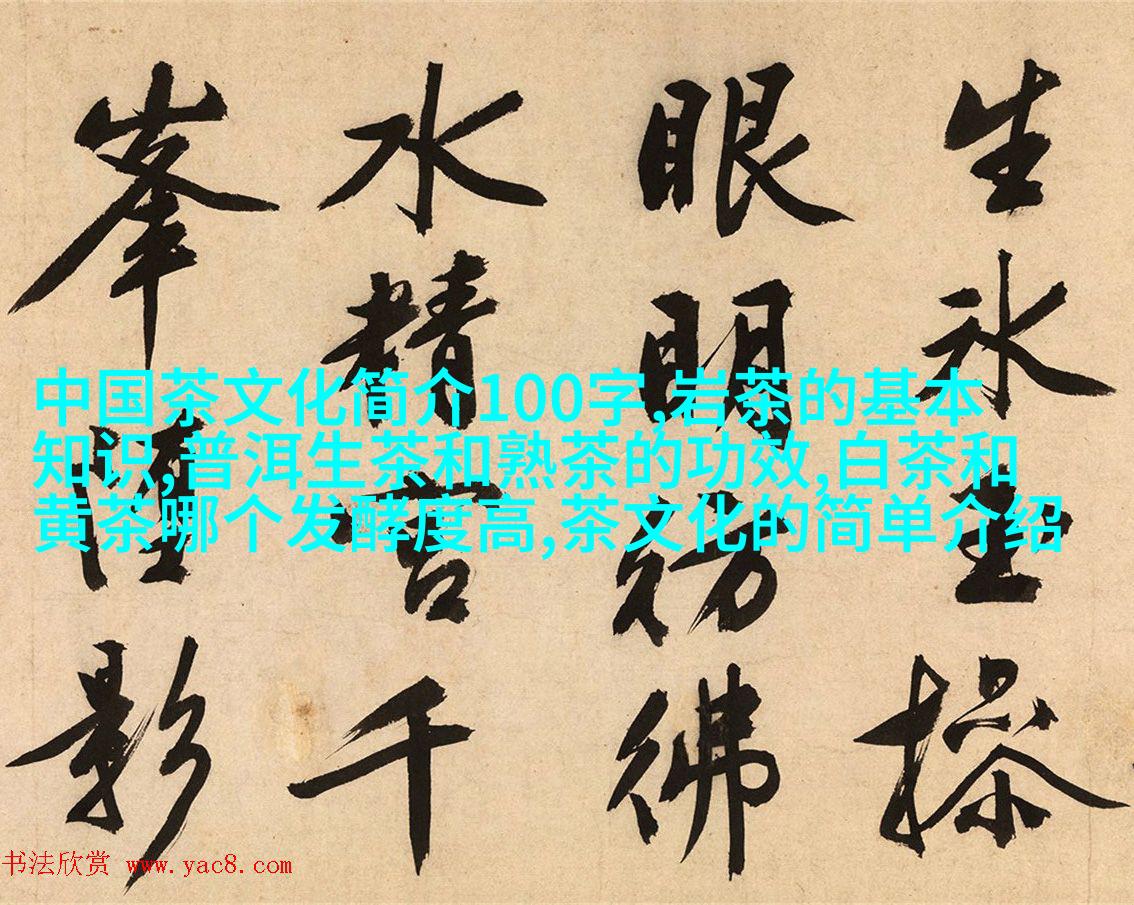 生永操
眼明彷彿
水精宫千
峯影
中国茶文化简介100字,岩茶的基本
知识,普洱生茶和熟茶的功效,白茶和
黄茶哪个发酵度高,茶文化的简单介绍
书法欣赏 www.yac8.com